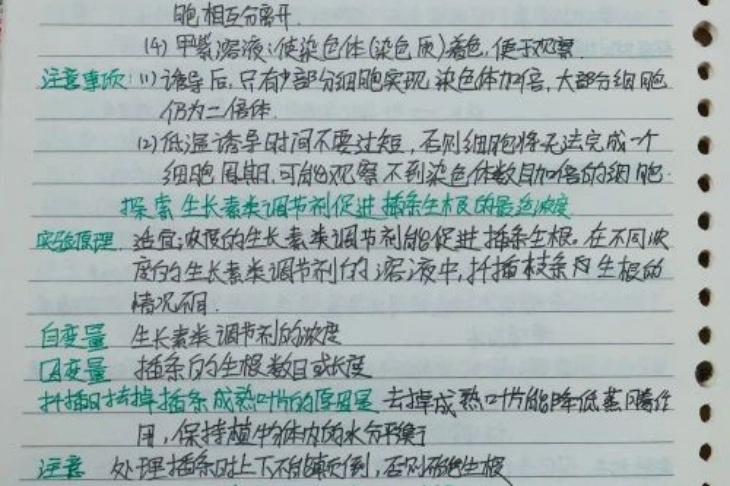 胞相互分离开.
(4) 甲紫溶液:使染色体(染色质)着色,便于观察.
注意事项:(1) 诱导后,只有少部分细胞实现染色体加倍,大部分细胞
仍为二倍体.
(2)低温诱导时间不要过短,否则细胞将无法完成一个
细胞周期,可能观察不到染色体数目加倍的细胞.
探索生长素类调节剂促进插条生根的最适浓度
实验原理 适宜浓度的生长素类调节剂能促进插条生根。在不同浓
度的生长素类调节剂的溶液中,扦插枝条的生根的
情况不同.
自变量 生长素类调节剂的浓度
因变量 插条的生根数目或长度
扦插时去掉插条成熟叶片的原因是 去掉成熟叶片能降低蒸腾作
用,保持植物体内的水分平衡
注意 处理插条时上下不能颠倒,否则不能生根